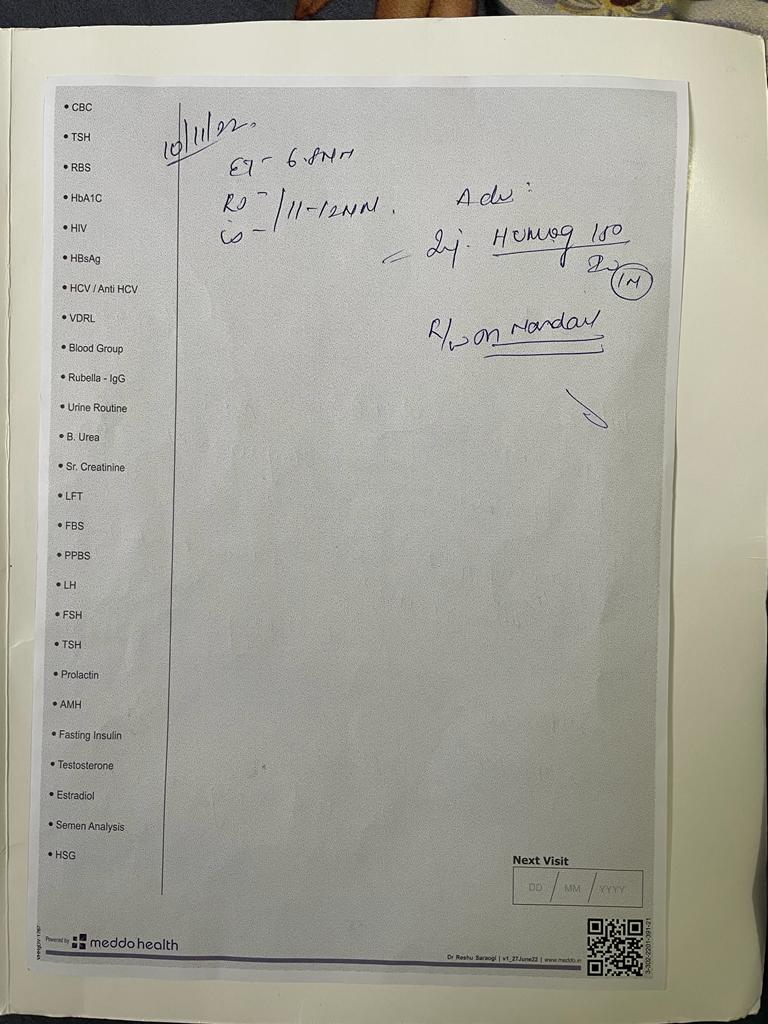 • CBC
• TSH
• RBS
• HbA1C
• HIV
• HBsAg
• HCV / Anti HCV
• VDRL
• Blood Group
• Rubella - IgG
• Urine Routine
• B. Urea
• Sr. Creatinine
• LFT
• FBS
• PPBS
• LH
• FSH
• TSH
• Prolactin
• AMH
• Fasting Insulin
• Testosterone
• Estradiol
• Semen Analysis
• HSG
10/11/22.
ET - 6.8MM
RO -
LO - / 11-12MM.
Adv:
Inj. HUMOG 150
IM
R/w on Monday
Next Visit
DD / MM / YYYY
Powered by meddo health
Dr Reshu Saraogi | v1_27June22 | www.meddo.in
3-302-2201-391-21